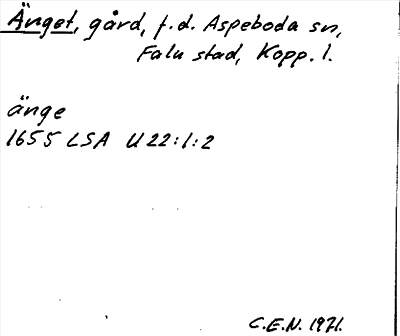 Änget, gård, f.d. Aspeboda sn,
Falu stad, Kopp. l.
änge
1655 LSA U 22:1:2
C.E.N. 1971.